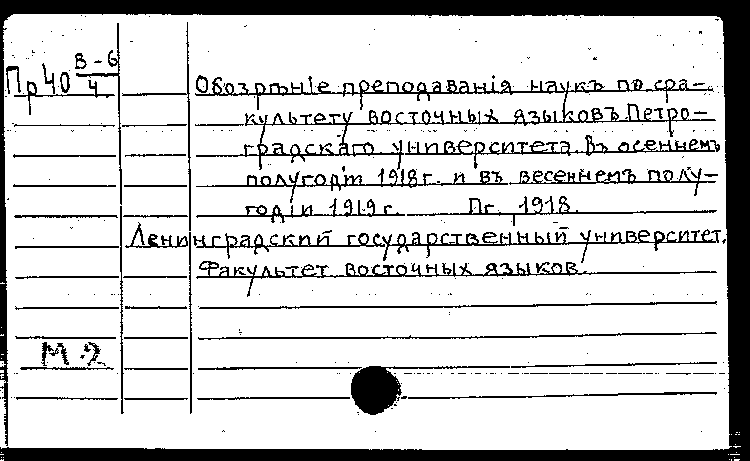 Пр40 В-6/4
Обозрѣніе преподаванія наукъ по фа-
культету восточныхъ языковъ Петро-
градскаго университета. Въ осеннемъ
полугодіи 1918 г. и въ весеннемъ полу-
годіи 1919 г. Пг., 1918.
Ленинградский государственный университет.
Факультет восточных языков.
М-2